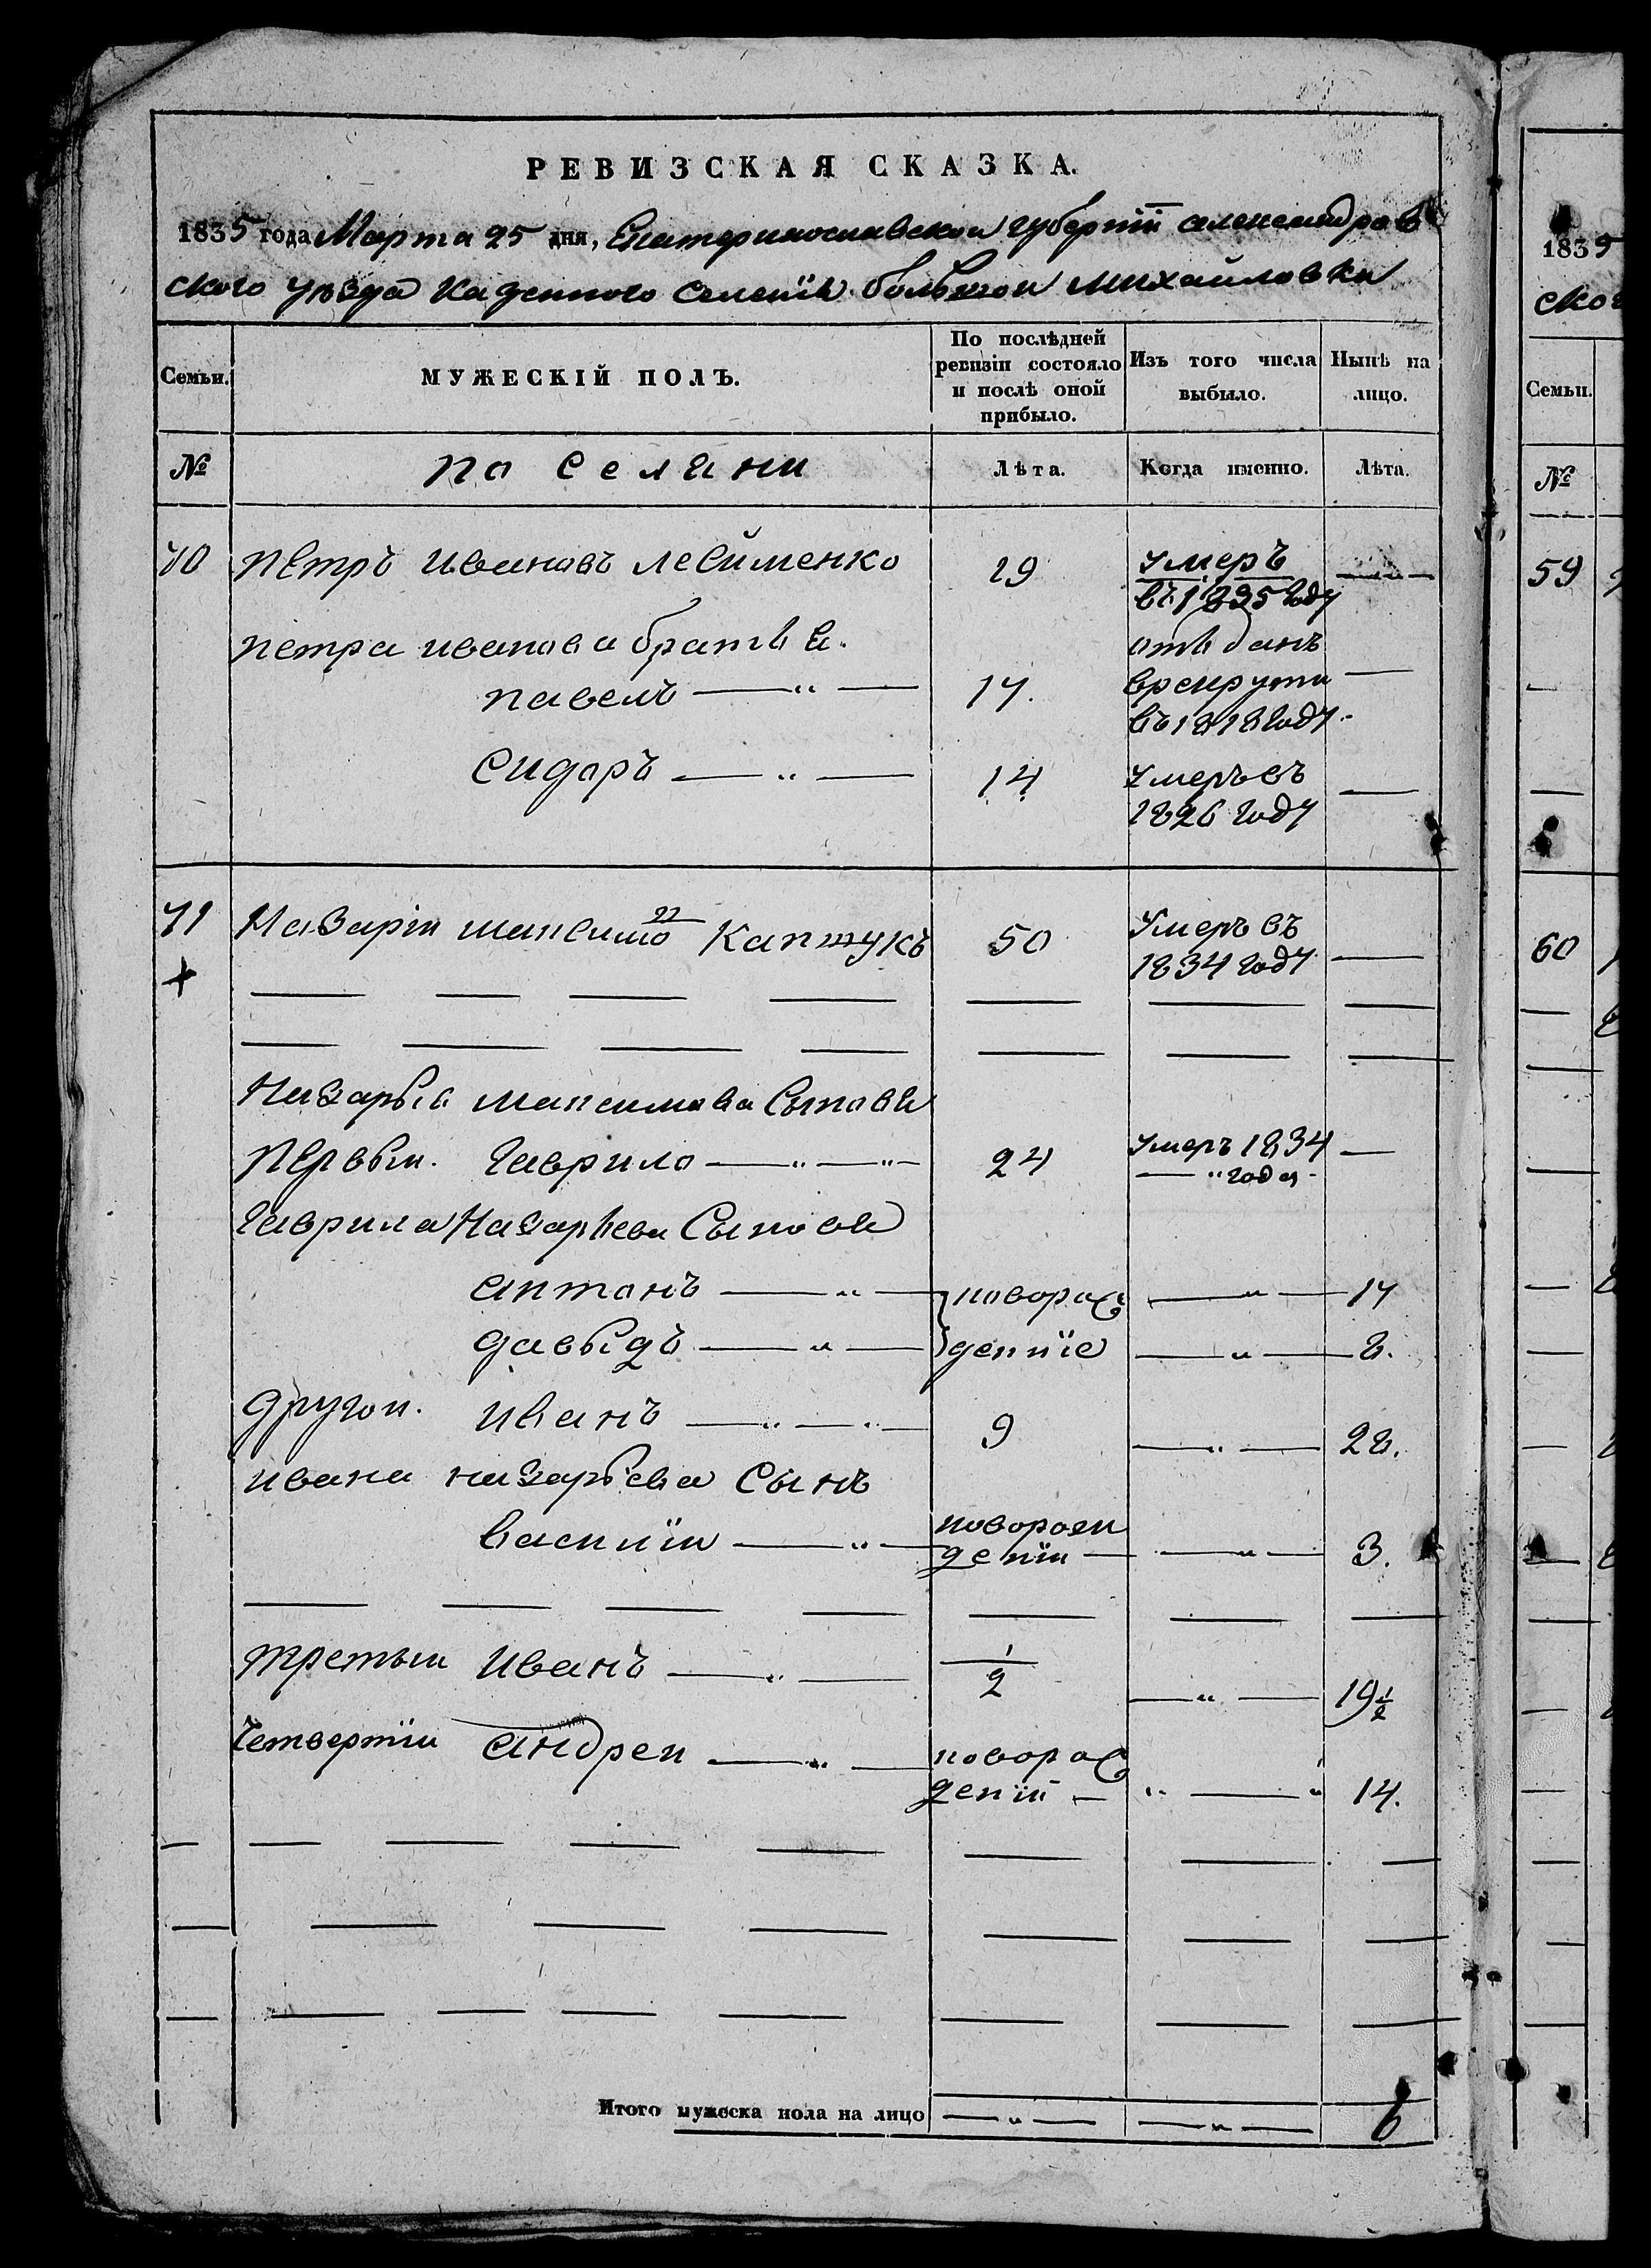 РЕВИЗСКАЯ СКАЗКА.
1835 года Марта 25 дня, Екатеринославской губерніи александров
ского уѣзда Казенного Селенія большой михайловки
Семьи. МУЖЕСКІЙ ПОЛЪ. По послѣдней ревизіи состояло и послѣ оной прибыло. Изъ того числа выбыло. Нынѣ на лицо.
№ поселяни Лѣта. Когда именно. Лѣта.
70 петръ ивановъ левименко 29 умеръ
въ 1835 году
петра иванова братья. отъданъ
павелъ — " — 17. врекруты —
въ 1818 году
сидоръ — " — 14 умеръ въ —
1826 году
71 Назарій максимо Капшукъ 50 Умеръ въ —
1834 году
Назарья максимова Сыновя
первый. гаврило — " — " — 24 умеръ 1834 —
— " года
гаврила Назарьева Сыновя
антонъ — " — новорож — " — 17
давыдъ — " — денніе — " — 8.
другой. иванъ — " — " — 9 — " — 28.
ивана назарьева Сынъ
василій — " — новорожденій — — " — 3.
третьи иванъ — " — 1/2 — " — 19 1/2
четвертіи андреи — " — новорож
деній — " — " 14.
Итого мужеска пола на лицо — " — — " — 6
1835
ског
Семьи.
№
59
60